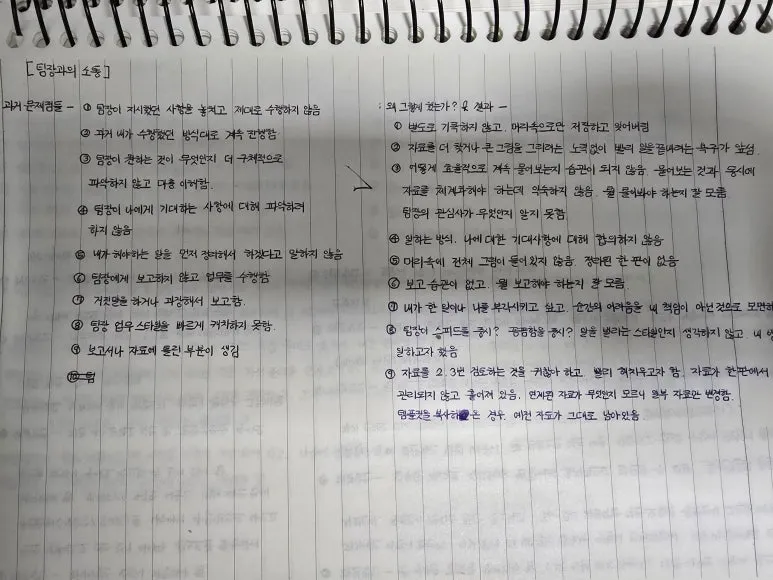 [팀장과의 소통]
과거 문제점들 - ① 팀장이 지시했던 사항을 놓치고 제대로 수행하지 않음
② 과거 내가 수행했던 방식대로 계속 진행함
③ 팀장이 원하는 것이 무엇인지 더 구체적으로
파악하지 않고 대충 이해함.
④ 팀장이 나에게 기대하는 사항에 대해 파악하려
하지 않음
⑤ 내가 해야하는 일을 먼저 정리해서 하겠다고 말하지 않음
⑥ 팀장에게 보고하지 않고 업무를 수행함
⑦ 거짓말을 하거나 과장해서 보고함.
⑧ 팀장 업무 스타일을 빠르게 캐치하지 못함.
⑨ 보고서나 자료에 틀린 부분이 생김
⑩ 팀
: 왜 그렇게 했는가? 및 결과 -
① 별도로 기록하지 않고, 머리속으로만 저장하고 잊어버림
② 자료를 더 찾거나 큰 그림을 그리려는 노력없이 빨리 일을 끝내려는 욕구가 앞섬.
③ 어떻게 효율적으로 계속 물어보는지 습관이 되지 않음. 물어보는 것과 동시에
자료를 체계화해야 하는데 익숙하지 않음. 뭘 물어봐야 하는지 잘 모름
팀장의 관심사가 무엇인지 알지 못함.
④ 일하는 방식, 나에 대한 기대사항에 대해 합의하지 않음
⑤ 머리속에 전체 그림이 들어있지 않음. 정리된 한 판이 없음
⑥ 보고 습관이 없고, 뭘 보고해야 하는지 잘 모름.
⑦ 내가 한 일이나 나를 부각시키고 싶고, 순간의 어려움을 내 책임이 아닌것으로 모면하
⑧ 팀장이 스피드를 중시? 꼼꼼함을 중시? 일을 벌리는 스타일인지 생각하지 않고 내
일하고자 했음
⑨ 자료를 2, 3번 검토하는 것을 귀찮아 하고, 빨리 해치우고자 함. 자료가 한판에서
관리되지 않고 흩어져 있음. 연계된 자료가 무엇인지 모르니 일부 자료만 변경함.
템플릿을 복사해 온 경우, 예전 자료가 그대로 남아있음